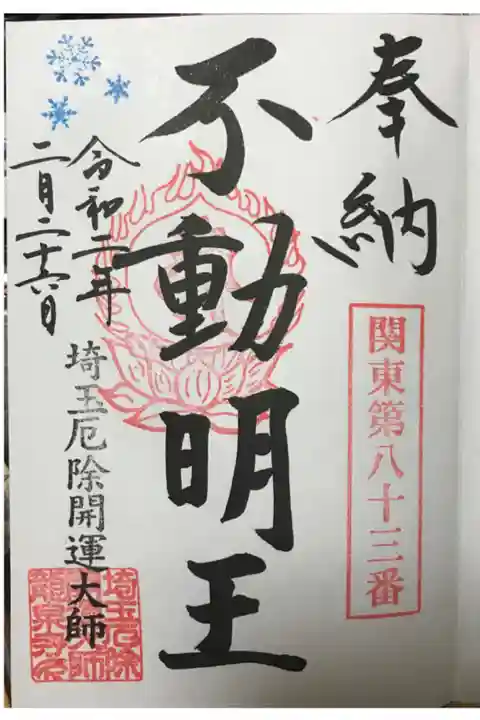 奉納
関東第八十三番
不動明王
令和二年
二月二十六日
埼玉厄除開運大師
埼玉厄除